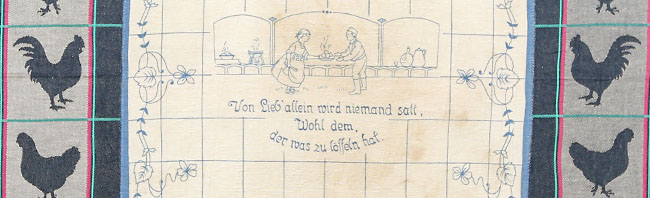 Von Lieb' allein wird niemand satt,
Wohl dem,
der was zu löffeln hat.